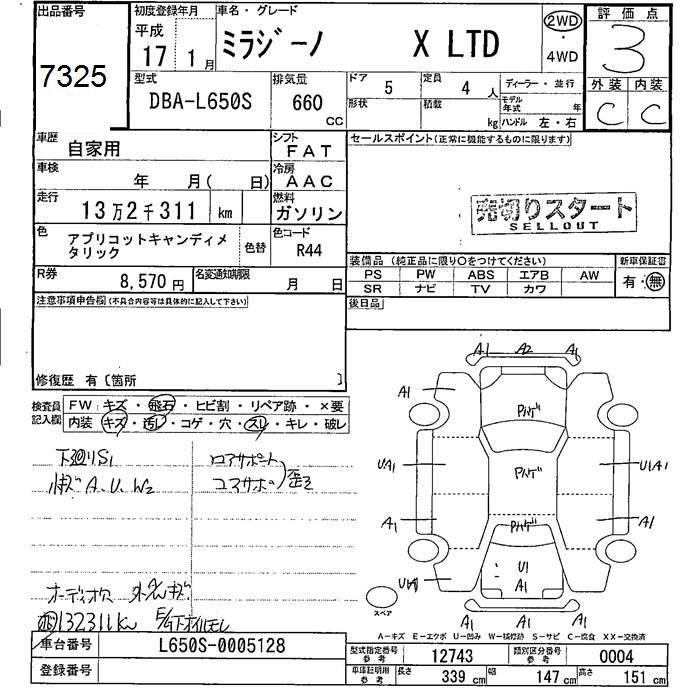 出品番号
7325
初度登録年月
平成
17 1月
車名・グレード
ミラジーノ X LTD
2WD
・
4WD
評価点
3
外装 内装
C C
型式
DBA-L650S
排気量
660
CC
ドア
5
定員
4人
形状
積載
kg
ディーラー・並行
モデル年式 年
ハンドル 左・右
車歴
自家用
シフト
FAT
車検
年 月( 日)
冷房
AAC
走行
13万2千311 km
燃料
ガソリン
色
アプリコットキャンディメ
タリック
色替
色コード
R44
R券
8,570円
名変通知期限
月 日
セールスポイント(正常に機能するものに限ります)
売切りスタート
SELLOUT
装備品(純正品に限り○をつけてください)
PS PW ABS エアB AW
SR ナビ TV カワ
新車保証書
有・無
後日品
注意事項申告欄(不具合内容等は具体的に記入して下さい)
修復歴 有〔箇所 〕
検査員
記入欄
FW キズ・飛石・ヒビ割・リペア跡・×要
内装 キズ・汚れ・コゲ・穴・スレ・キレ・破レ
下廻りS1
A.U.W2
ロアサポート
コアサポ
歪ミ
オーディオ欠
132311km
A1 A2 A1
A1
Pハゲ
UA1
Pハゲ
U1A1
A1
Pハゲ
A1
U1
A1
UA1
A1
A1 A1
スペア
A-キズ E-エクボ U-凹み W-補修跡 S-サビ C-腐食 XX-交換済
車台番号
L650S-0005128
登録番号
型式指定番号
参考
12743
類別区分番号
参考
0004
車庫証明用
参考
長さ 339cm 幅 147cm 高さ 151cm